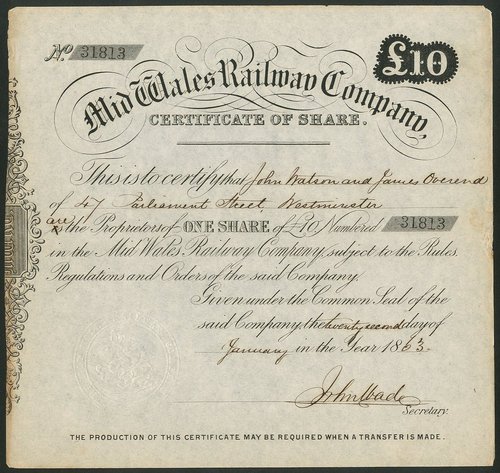 No 31813
£10
Mid Wales Railway Company,
CERTIFICATE OF SHARE.
This is to certify that John Watson and James Overend
of 47 Parliament Street, Westminster
are is the Proprietors of ONE SHARE of £10 Numbered 31813
in the Mid Wales Railway Company, subject to the Rules
Regulations and Orders of the said Company.
Given under the Common Seal of the
said Company, the twenty second day of
January in the Year 1863.
John Wade
Secretary.
THE PRODUCTION OF THIS CERTIFICATE MAY BE REQUIRED WHEN A TRANSFER IS MADE.